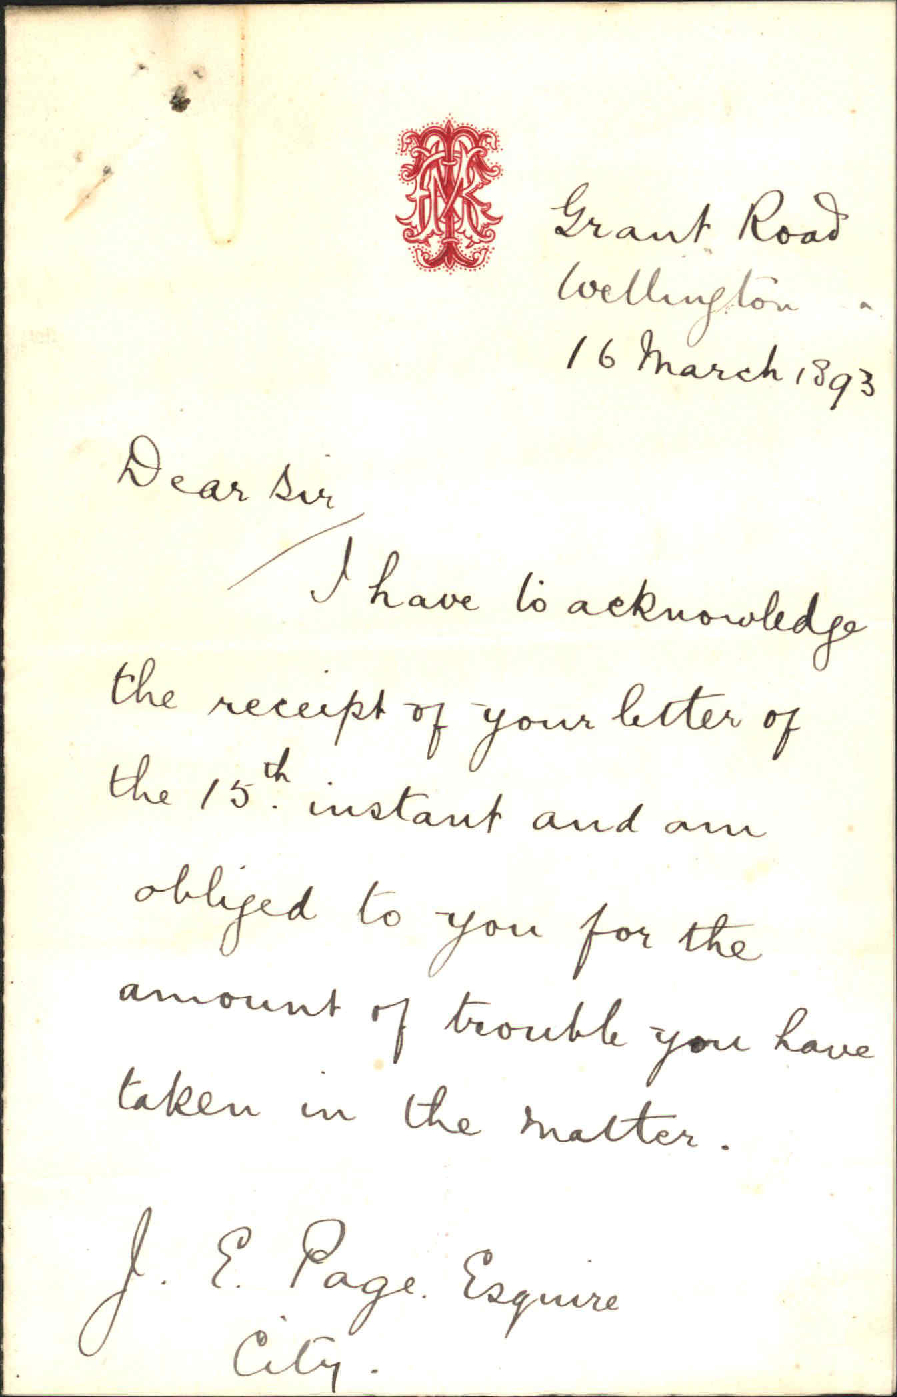 Grant Road
Wellington
16 March 1893
Dear Sir
I have to acknowledge
the receipt of your letter of
the 15th. instant and am
obliged to you for the
amount of trouble you have
taken in the matter.
J. E. Page. Esquire
City.